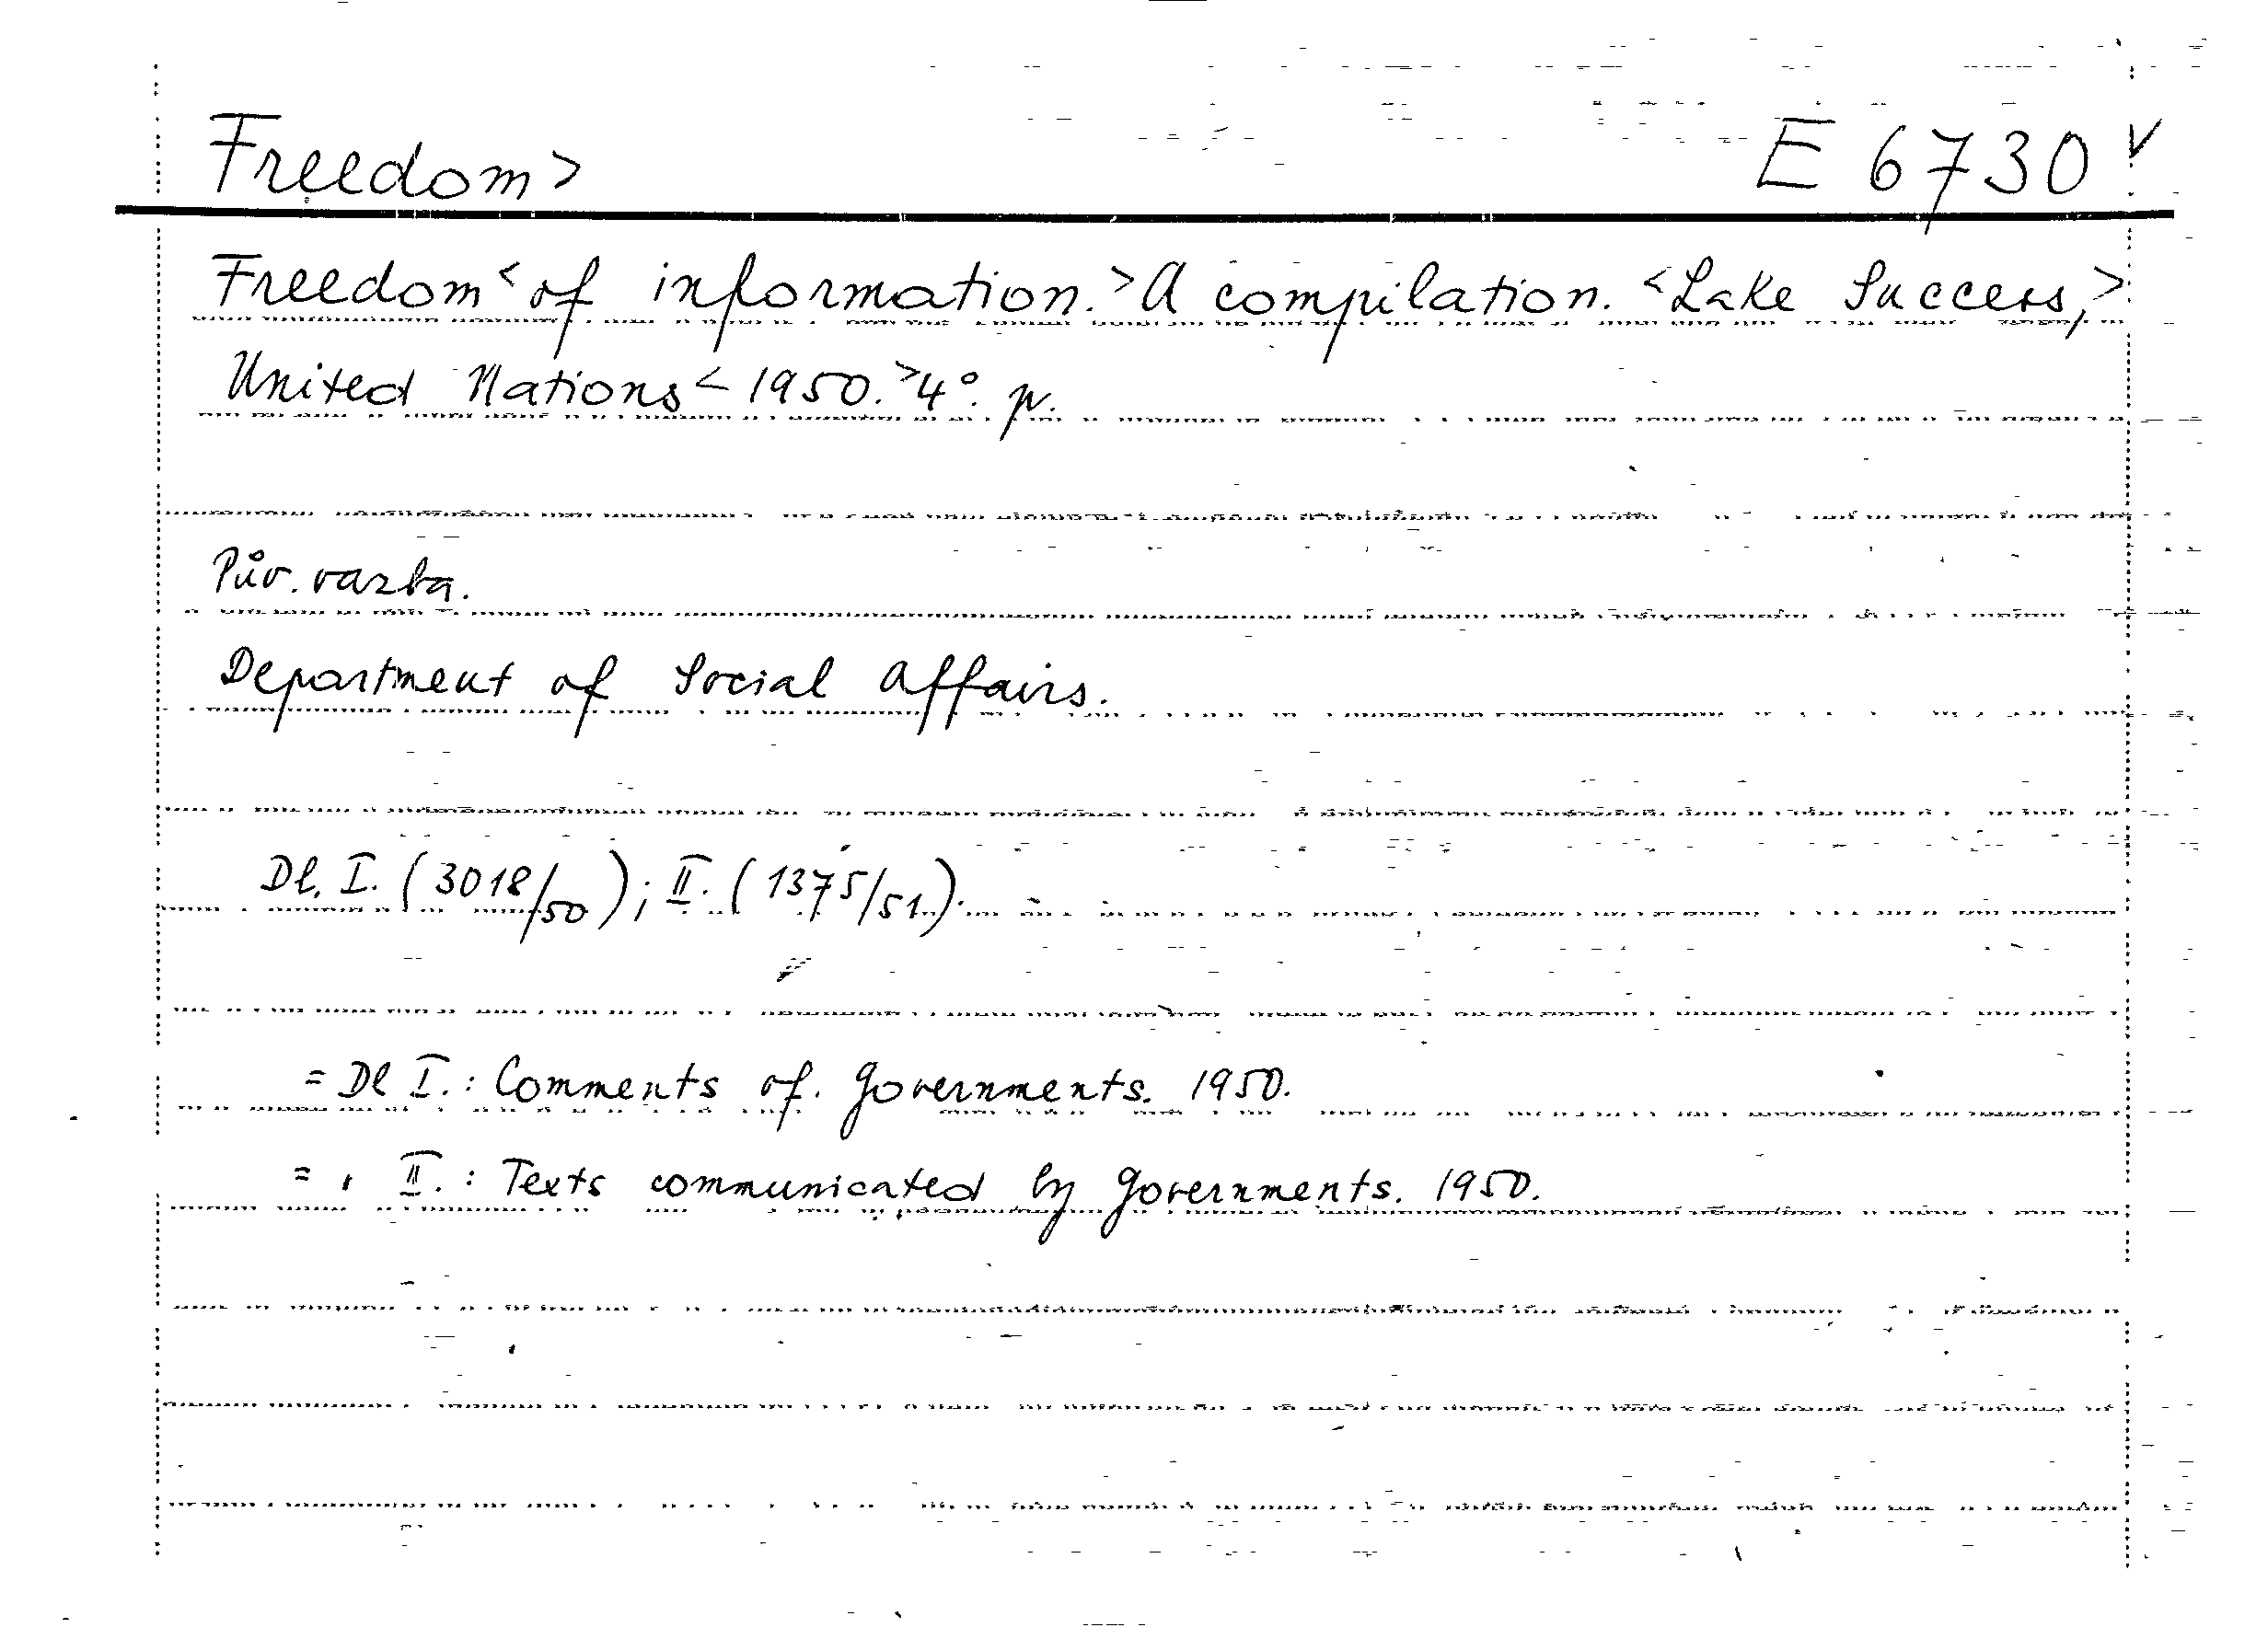 Freedom> E 6730 v
Freedom< of information.> A compilation. <Lake Success,>
United Nations< 1950.> 4°. p.
Pův. vazba.
Department of Social Affairs.
Dl. I. (3018/50); II. (1375/51).
= Dl I.: Comments of governments. 1950.
= , II.: Texts communicated by governments. 1950.